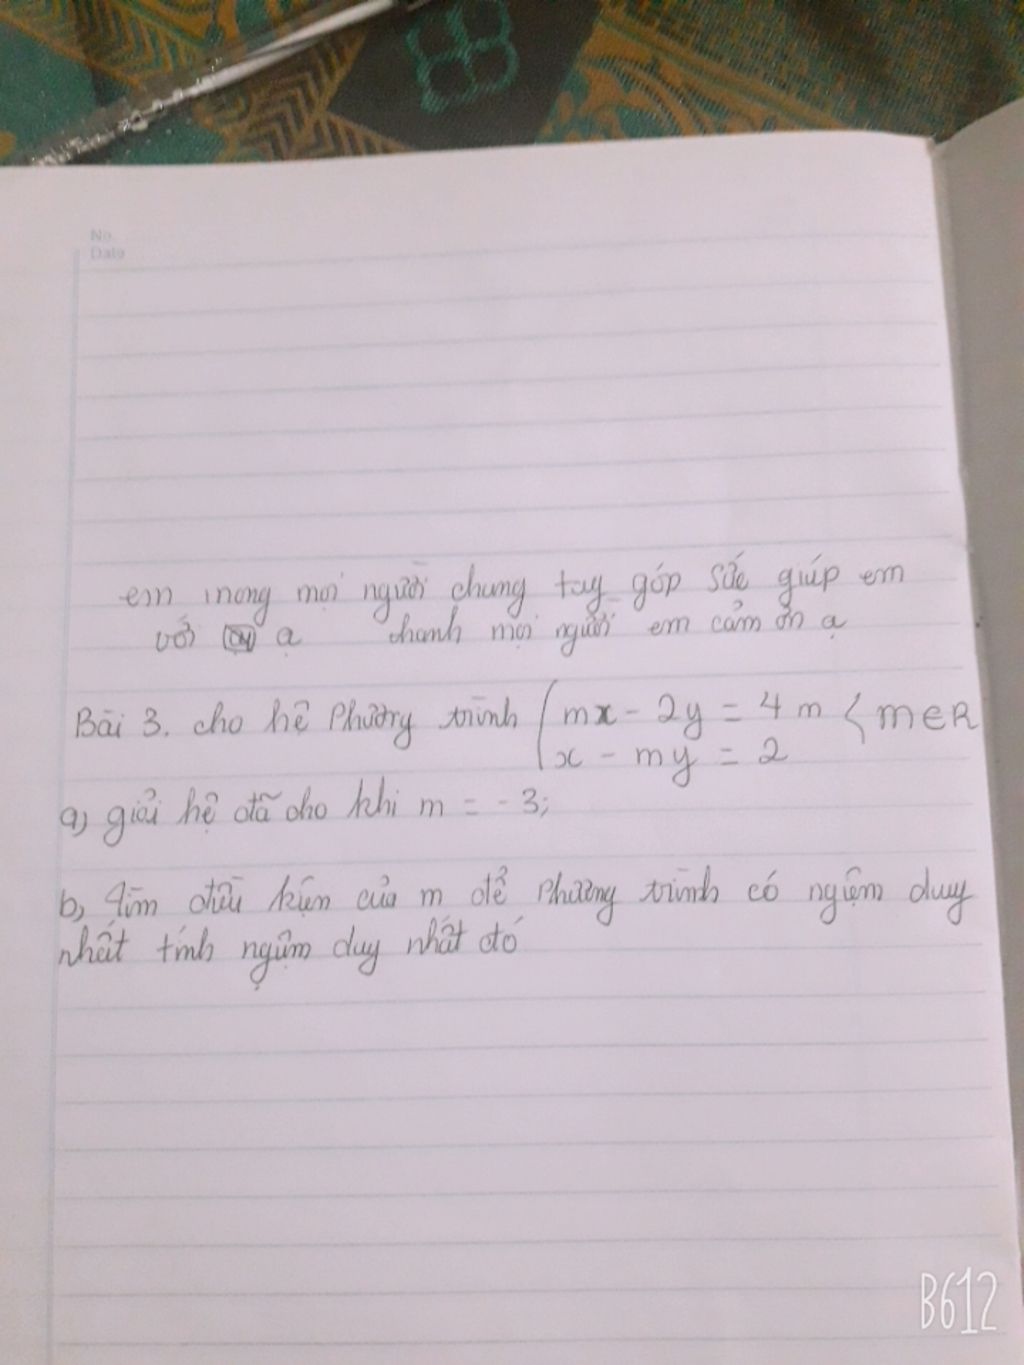 No.
Date
em mong mọi người chung tay góp sức giúp em
với ạ chanh mọi người em cảm ơn ạ
Bài 3. cho hệ Phương trình { mx - 2y = 4m < m ∈ R
x - my = 2
a) giải hệ đã cho khi m = -3;
b) Tìm điều kiện của m để Phương trình có ngiệm duy
nhất tính ngiệm duy nhất đó
B612